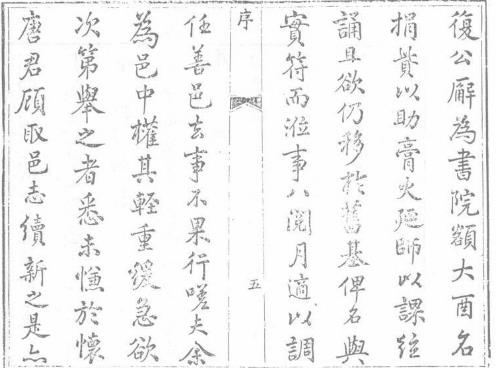 復公廨為書院額大酉名
捐貲以助膏火延師以課絃
誦且欲仍移於舊基俾名與
實符而涖事八閱月適以調
序
五
任善邑去事不果行嗟夫余
為邑中權其輕重緩急欲
次第舉之者悉未愜於懷
唐君顧取邑志續新之是亦